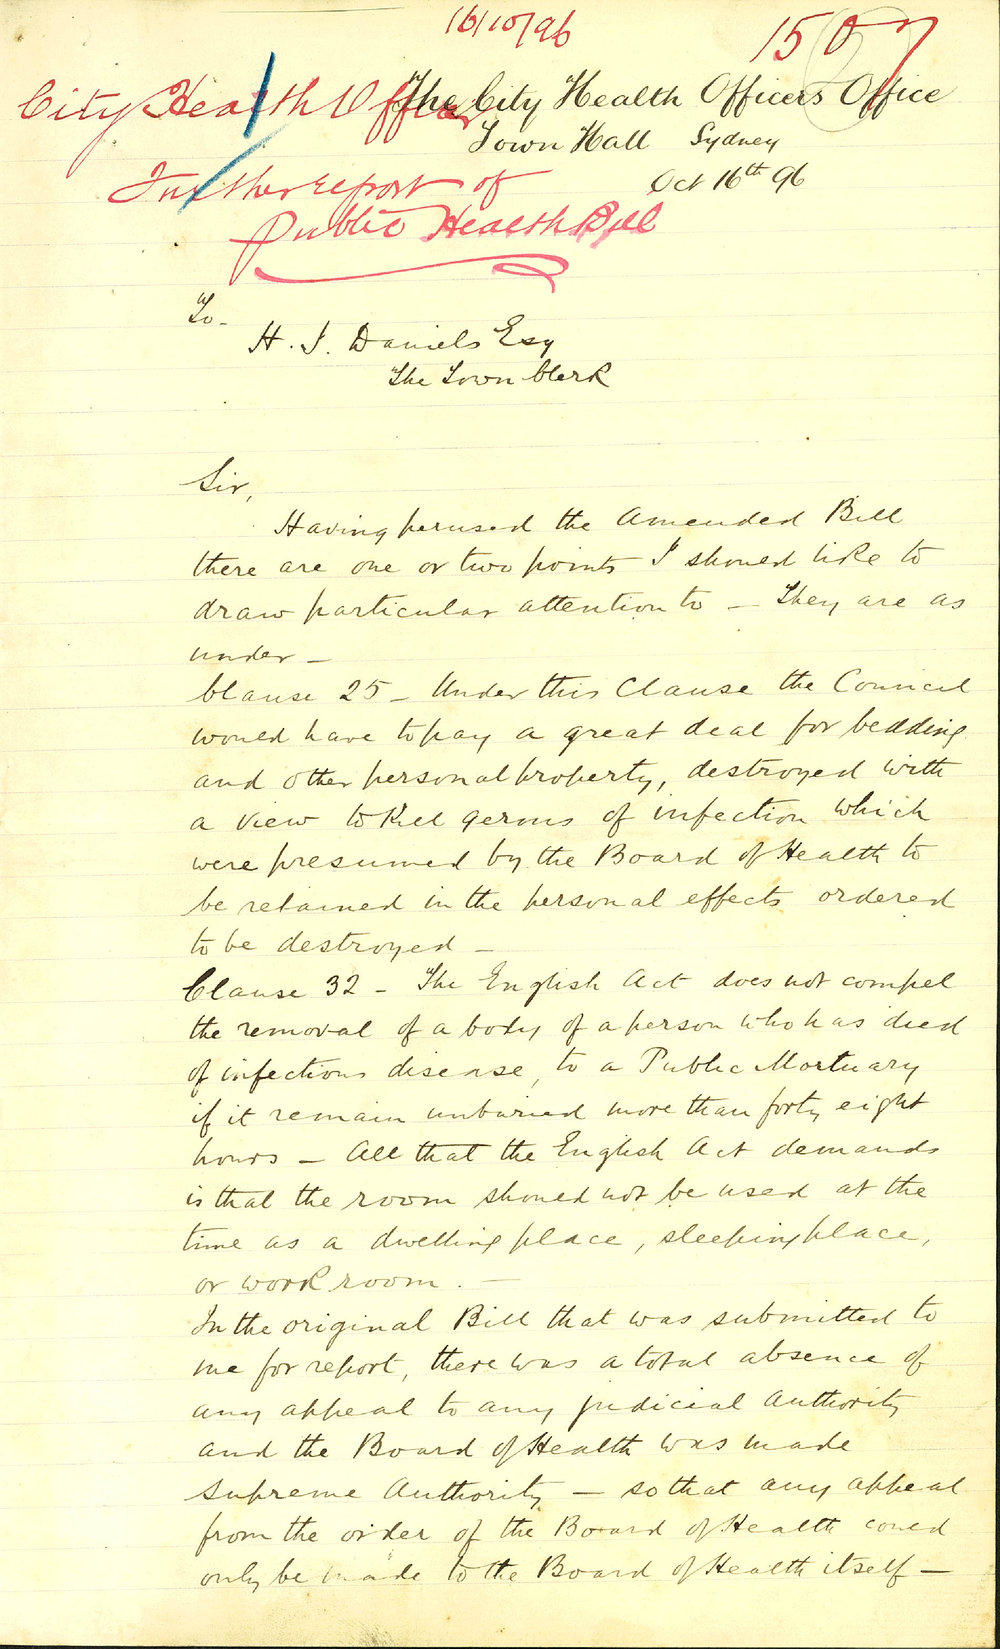 16/10/96
1507
City Health Officer
The City Health Officers Office
Town Hall Sydney
Oct 16th 96
Further report of
Public Health Bill
To-
H. J. Daniels Esq
The Town Clerk
Sir,
Having perused the Amended Bill
there are one or two points I should like to
draw particular attention to - They are as
under -
Clause 25 - Under this Clause the Council
would have to pay a great deal for bedding
and other personal property, destroyed with
a view to kill germs of infection which
were presumed by the Board of Health to
be retained in the personal effects ordered
to be destroyed -
Clause 32 - The English Act does not compel
the removal of a body of a person who has died
of infectious disease, to a Public Mortuary
if it remain unburied more than forty eight
hours - All that the English Act demands
is that the room should not be used at the
time as a dwelling place, sleeping place,
or work room. -
In the original Bill that was submitted to
me for report, there was a total absence of
any appeal to any judicial authority
and the Board of Health was made
supreme Authority - so that any appeal
from the order of the Board of Health could
only be made to the Board of Health itself -